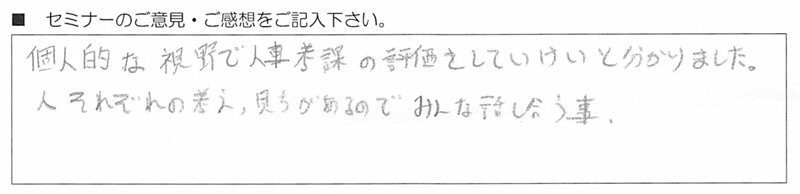 ■ セミナーのご意見・ご感想をご記入下さい。
個人的な視野で人事考課の評価をしていけいと分かりました。
人それぞれの考え,見ちがあるのでみんな話し合う事.